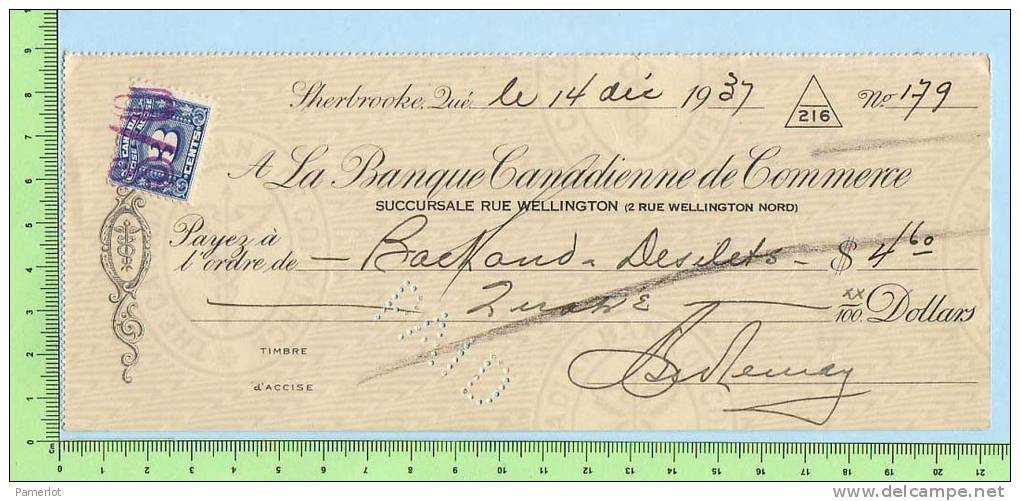 Sherbrooke, Qué. le 14 déc 1937 216 No 179
CANADA
EXCISE
3
CENTS
A La Banque Canadienne de Commerce
SUCCURSALE RUE WELLINGTON (2 RUE WELLINGTON NORD)
Payez à
l'ordre de — Desilets — $ 4.60
xx/100 Dollars
PAID
TIMBRE
d'ACCISE
Cm 0 1 2 3 4 5 6 7 8 9
0 1 2 3 4 5 6 7 8 9 10 11 12 13 14 15 16 17 18 19 20 21
Pamerlot
www.delcampe.net